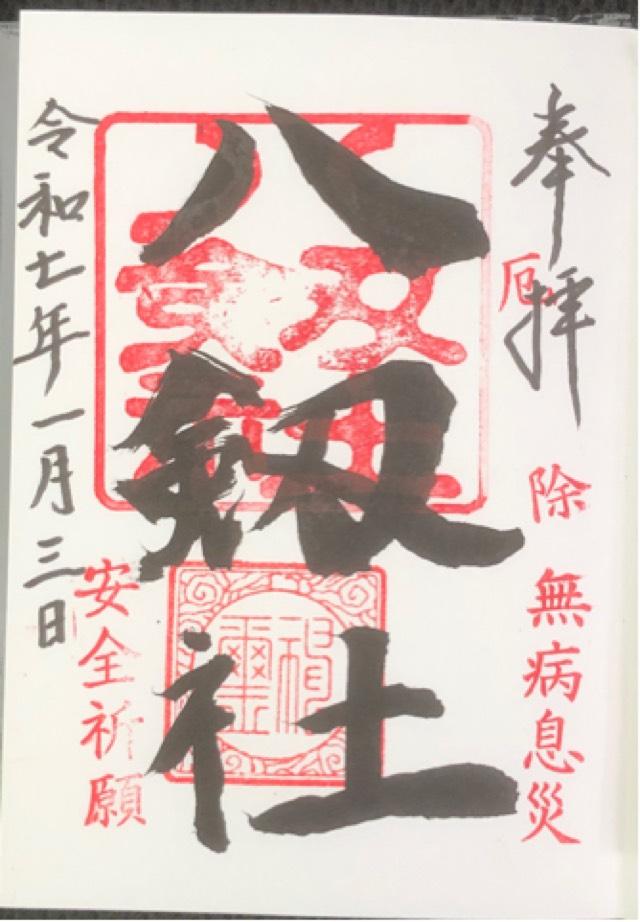 奉拝
厄除
無病息災
八剱社
安全祈願
令和七年一月三日